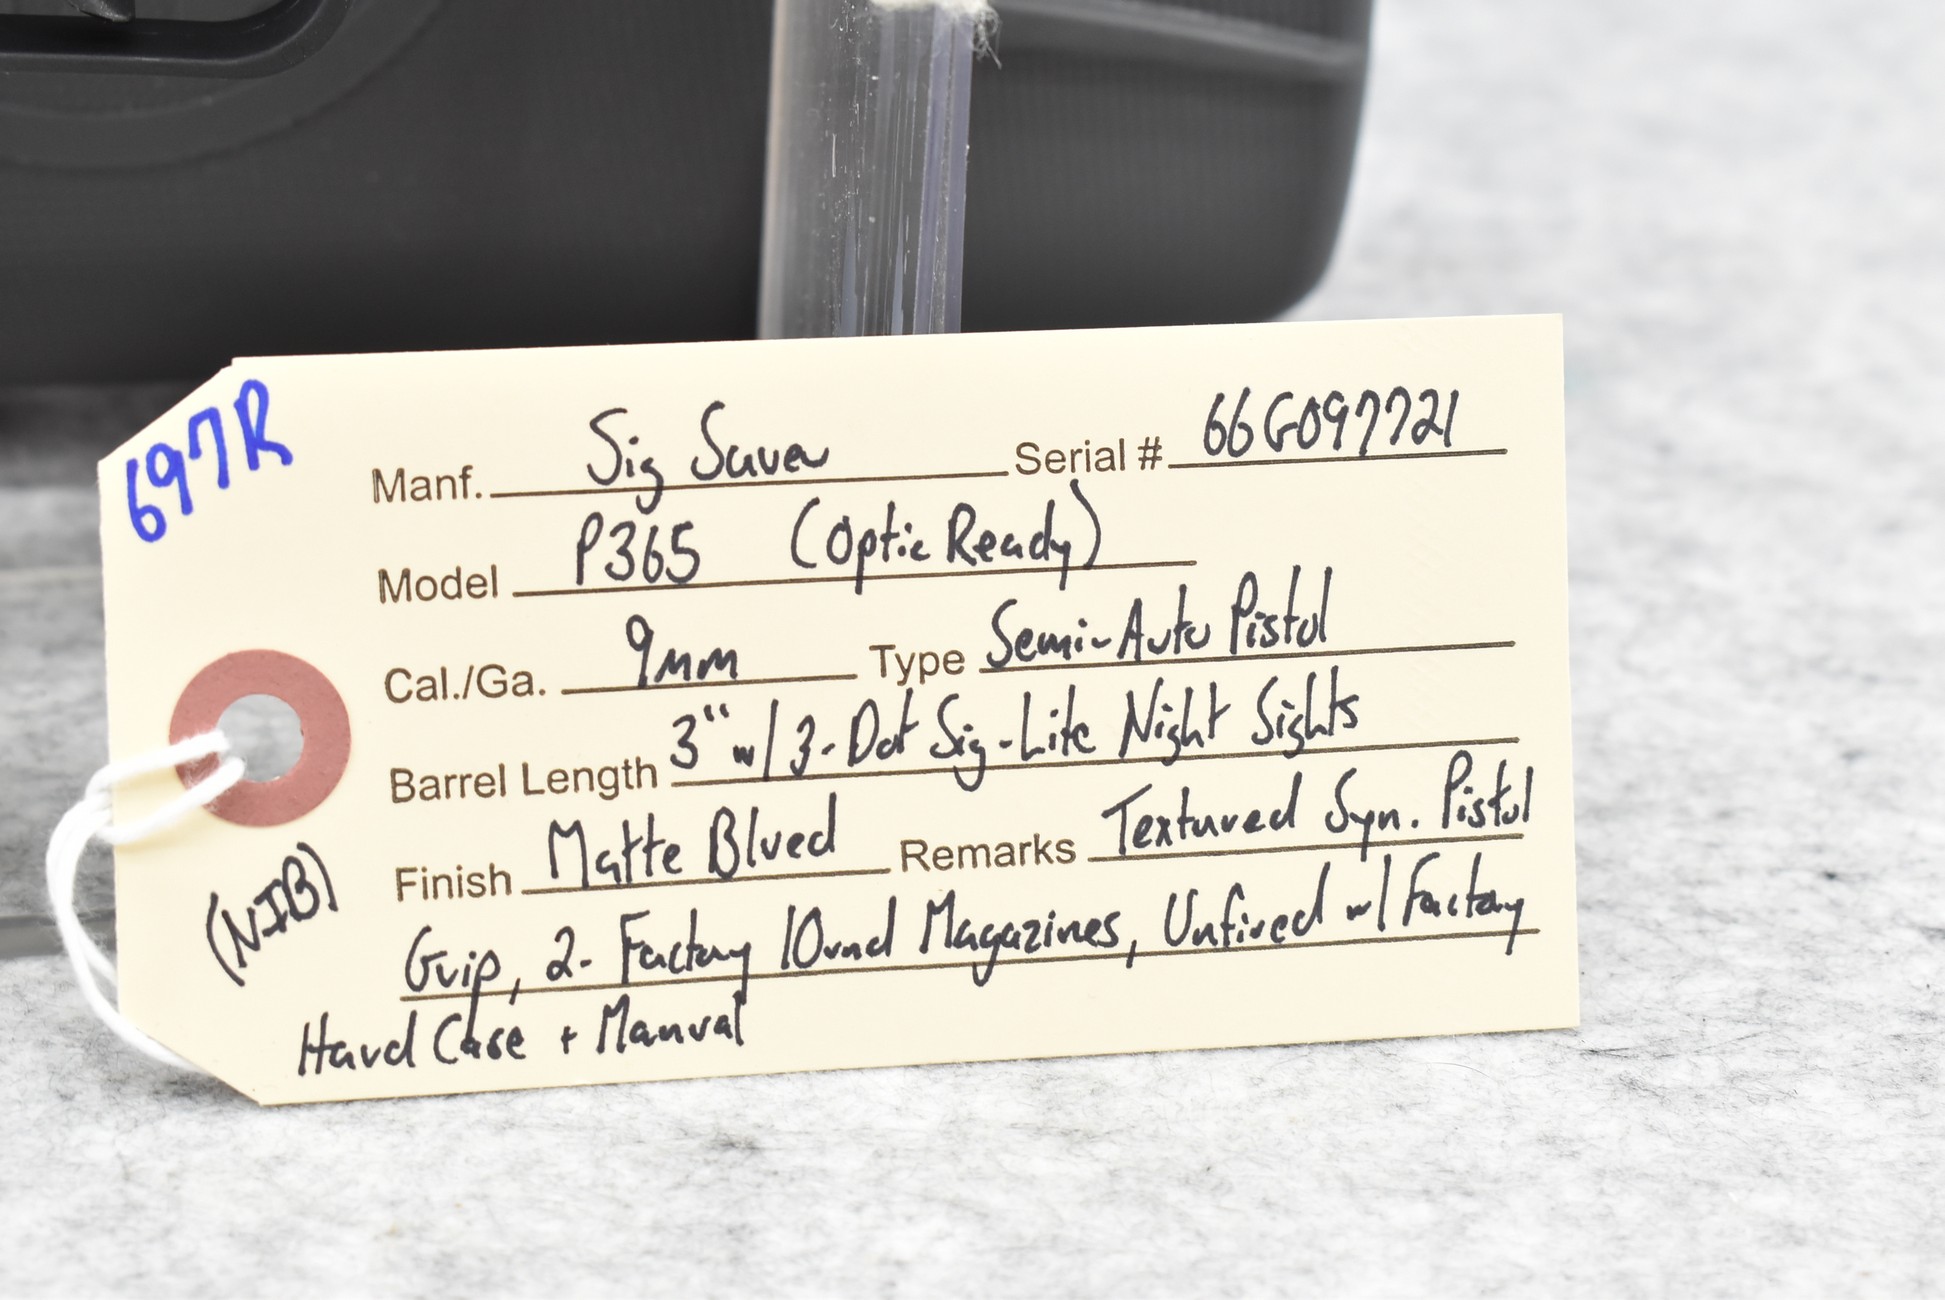 697R
Manf. Sig Sauer Serial # 66G097721
Model P365 (Optic Ready)
Cal./Ga. 9mm Type Semi-Auto Pistol
Barrel Length 3" w/ 3-Dot Sig-Lite Night Sights
Finish Matte Blued Remarks Textured Syn. Pistol
(NIB)
Grip, 2- Factory 10rnd Magazines, Unfired w/ Factory
Hard Case + Manual